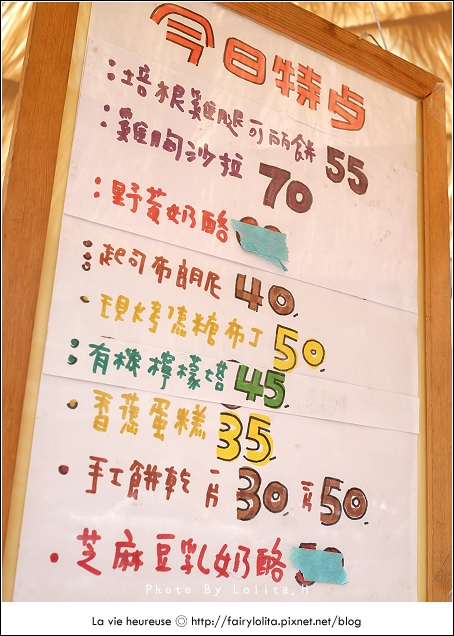 今日特点
:培根雞腿可丽餅 55
:雞胸沙拉 70
:野莓奶酪
:起司布朗尼 40
·現烤焦糖布丁 50
:有機檸檬塔 45
:香蕉蛋糕 35
·手工餅乾 一片30 二片50
·芝麻豆乳奶酪
Photo By Lolita.H
La vie heureuse ◎ http://fairylolita.pixnet.net/blog